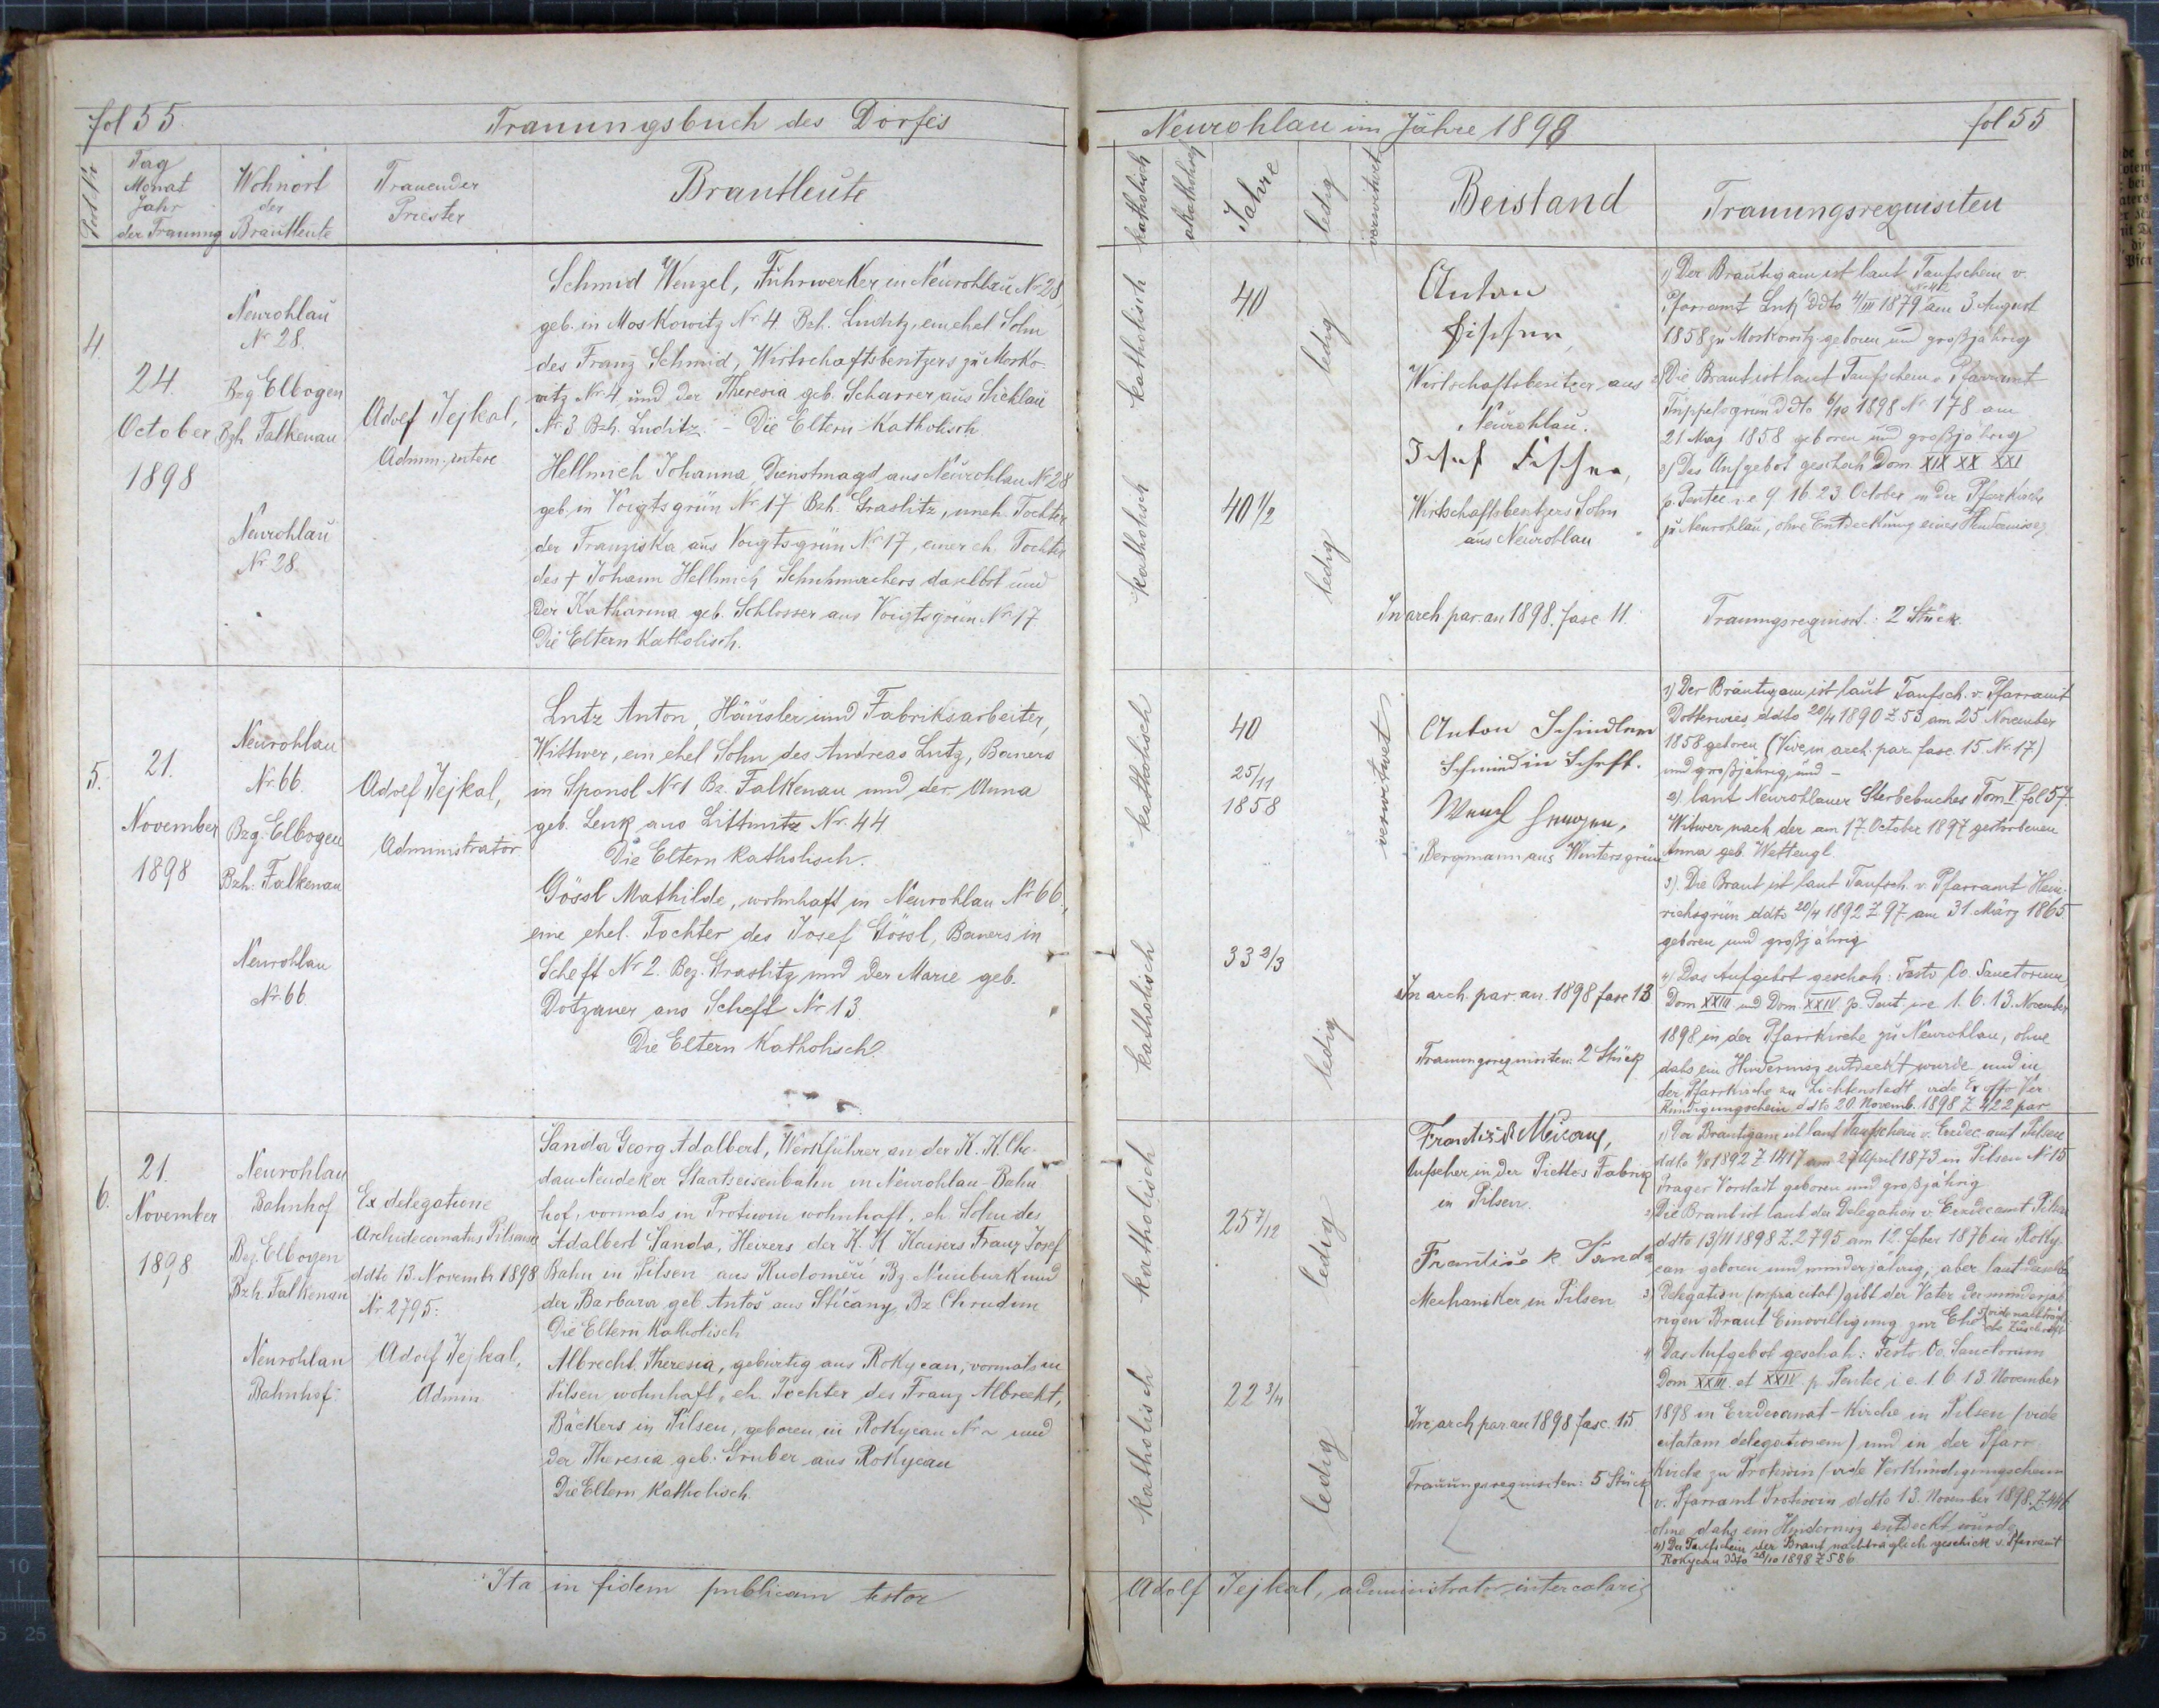 fol 55.
Trauungsbuch des Dorfes
Port. Nr
Tag
Monat
Jahr
der Trauung
Wohnort
der
Brautleute
Trauender
Priester
Brautleute
4.
24.
October
1898
Neurohlau
Nr 28.
Bzg Elbogen
Bzh. Falkenau
Neurohlau
Nr 28.
Adolf Jejkal,
Admin. interc
Schmid Wenzel, Fuhrwerker in Neurohlau Nr 28,
geb. in Moskowitz Nr 4 Bzh. Luditz, ein ehel Sohn
des Franz Schmid, Wirtschaftsbesitzers zu Mosko-
witz Nr 4 und der Theresia geb. Scharrer aus Sichlau
Nr 3 Bzh. Luditz. - Die Eltern Katholisch.
Hellmich Johanna, Dienstmagd aus Neurohlau Nr 28
geb. in Voigtsgrün Nr 17 Bzh. Graslitz, uneh. Tochter
der Franziska aus Voigtsgrün Nr 17, einer eh. Tochter
des + Johann Hellmich Schuhmachers daselbst und
der Katharina geb. Schlosser aus Voigtsgrün Nr 17
Die Eltern Katholisch.
5.
21.
November
1898
Neurohlau
Nr. 66.
Bzg. Elbogen
Bzh. Falkenau
Neurohlau
Nr. 66.
Adolf Jejkal,
Administrator
Lutz Anton, Häusler und Fabriksarbeiter,
Wittwer, ein ehel Sohn des Andreas Lutz, Bauers
in Sponsl Nr 1 Bz. Falkenau und der Anna
geb. Lenk aus Littmitz Nr. 44
Die Eltern katholisch.
Gössl Mathilde, wohnhaft in Neurohlau Nr 66.,
eine ehel. Tochter des Josef Gössl, Bauers in
Scheft Nr 2. Bez. Graslitz und der Marie geb.
Dotzauer aus Scheft Nr 13.
Die Eltern Katholisch.
6.
21.
November
1898
Neurohlau
Bahnhof
Bez. Elbogen
Bzh. Falkenau
Neurohlau
Bahnhof
Ex delegatione
Archidecanatus Pilsensis
ddto 13. Novembr 1898
Nr 2795.
Adolf Jejkal,
Admin
Sanda Georg Adalbert, Werkführer an der K. K. Cho-
dau Neudeker Staatseisenbahn in Neurohlau-Bahn
hof, vormals in Protiwin wohnhaft, eh. Sohn des
Adalbert Sanda, Heizers der K. K Kaisers Franz Josef
Bahn in Pilsen aus Rudoměři Bz Nimburk und
der Barbara geb. Antoš aus Stíčany, Bz Chrudim
Die Eltern Katholisch
Albrecht Theresia, gebürtig aus Rokycan, vormals in
Pilsen wohnhaft, eh. Tochter des Franz Albrecht,
Bäckers in Pilsen, geboren in Rokycan Nr ~ und
der Theresia geb. Gruber aus Rokycan
Die Eltern Katholisch.
Ita in fidem publicam testor
Neurohlau im Jahre 1898
fol 55
katholisch
akatholisch
Jahre
ledig
verwitwet
Beistand
Trauungsrequisiten
katholisch
40
ledig
katholisch
40 1/2
ledig
Anton
Fischer,
Wirtschaftsbesitzer aus
Neurohlau.
Josef Fischer,
Wirtschaftsbesitzers Sohn
aus Neurohlau
In arch. par. an 1898. fasc 11.
1) Der Bräutigam ist laut Taufschein v.
Nr 42
Pfarramt Luk ddto 4/III 1879 am 3 August
1858 zu Moskowitz geboren und großjährig
2) Die Braut ist laut Taufschein v. Pfarramt
Tüppelsgrün ddto 6/10 1898 Nr 178 am
21 May 1858 geboren und großjährig
3) Das Aufgebot geschah Dom. XIX XX XXI
p. Pentec. i. e. 9. 16. 23 October in der Pfarrkirche
zu Neurohlau, ohne Entdeckung eines Hindernisses
Trauungsrequisit.: 2 Stück.
katholisch
40
25/11
1858
verwitwet
katholisch
33 2/3
ledig
Anton Schindler
Schmied in Scheft.
Wenzl
Bergmann aus Wintersgrün
In arch. par. an. 1898 fasc 13
Trauungsrequisiten: 2 Stück
1) Der Bräutigam ist laut Taufsch. v. Pfarramt
Dotterwies ddto 20/4 1890 Z 53 am 25 November
1858 geboren (Vide in arch. par. fasc. 15. Nr. 17.)
und großjährig, und -
2) laut Neurohlauer Sterbebuches Tom V fol 57
Witwer nach der am 17. October 1897 gestorbenen
Anna geb. Wettengl.
3). Die Braut ist laut Taufsch. v. Pfarramt Hein-
richsgrün ddto 20/4 1892 Z 97 am 31. März 1865
geboren und großjährig
4) Das Aufgebot geschah: Festo Oo. Sanctorum,
Dom XXIII und Dom. XXIV p. Pent. i. e 1. 6. 13. November
1898 in der Pfarrkirche zu Neurohlau, ohne
dass ein Hinderniss entdeckt wurde und in
der Pfarrkirche zu Lichtenstadt vide Ex offo Ver-
kündigungschein ddto 20. Novemb. 1898 Z 422 par
katholisch
25 7/12
ledig
katholisch
22 3/4
ledig
František
Aufseher in der Piettes Fabrik
in Pilsen.
František Sanda
Mechaniker in Pilsen
In arch par an 1898 fasc. 15
Trauungsrequisiten: 5 Stück
1) Der Bräutigam ist laut Taufschein v. Erzdec. amt Pilsen
ddto 4/8 1892 Z 1417 am 27 April 1873 in Pilsen Nr 15
Prager Vorstadt geboren und großjährig
2) Die Braut ist laut der Delegation v. Erzdecamt Pilsen
ddto 13/11 1898 Z. 2795 am 12. Feber 1876 in Roky-
can geboren und minderjährig, aber laut derselben
3) Delegation (supra citat) gibt der Vater der minderjäh
rigen Braut Einwilligung zur Ehe 5) vide nachträgli-
che Zuschrift
4) Das Aufgebot geschah: Festo Oo. Sanctorum
Dom XXIII. et XXIV. p. Pentec i. e. 1. 6. 13. November
1898 in Erzdecanat-Kirche in Pilsen (vide
citatam delegationem) und in der Pfarr-
Kirche zu Protiwin (vide Verkündigungschein
v. Pfarramt Protiwin ddto 13. November 1898. Z 446
ohne dass ein Hinderniss entdeckt wurde
4) Der Taufschein der Braut nachträglich geschickt v. Pfarramt
Rokycan ddto 28/10 1898 Z 586
Adolf Jejkal, administrator intercalaris